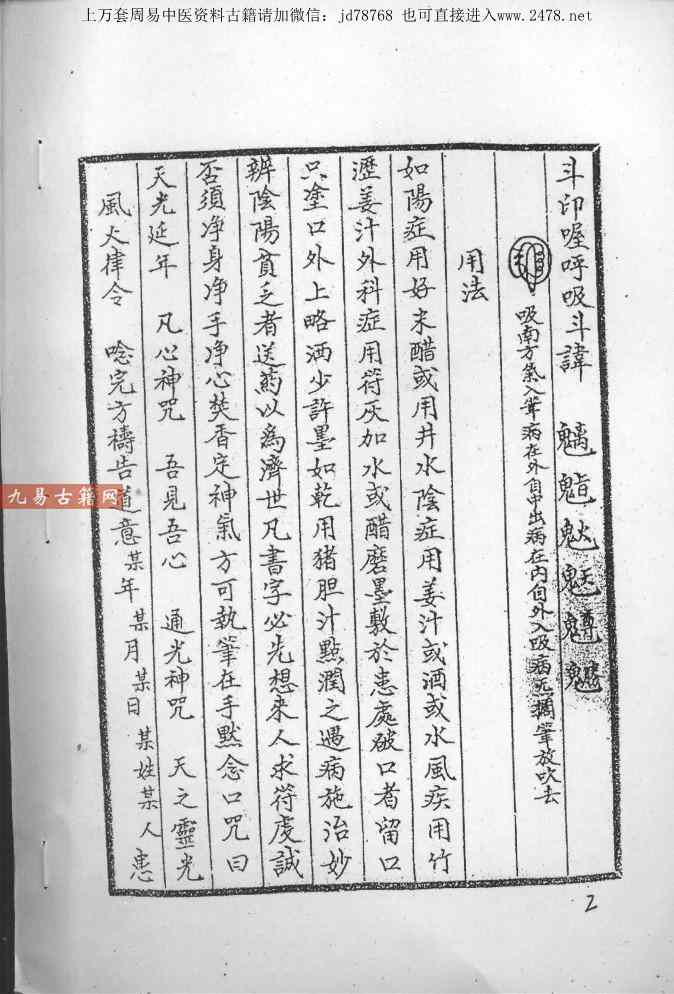 上万套周易中医资料古籍请加微信：jd78768 也可直接进入www.2478.net
斗印喔呼吸斗諱 魑魋魁魆
吸南方氣入筆病在外自中出病在内自外入吸病完擱筆放吹去
用法
如陽症用好米醋或用井水陰症用姜汁或酒或水風疾用竹
瀝姜汁外科症用符灰加水或醋磨墨敷於患處破口者留口
只塗口外上略洒少許墨如乾用猪胆汁點潤之遇病施治妙
辨陰陽貧乏者送药以為濟世凡書字必先想来人求符虔誠
否須净身净手净心焚香定神氣方可執筆在手默念口咒曰
天光延年 凡心神咒 吾見吾心 通光神咒 天之靈光
風火律令 唸完方禱告道意某年某月某日某姓某人患
九易古籍网
2